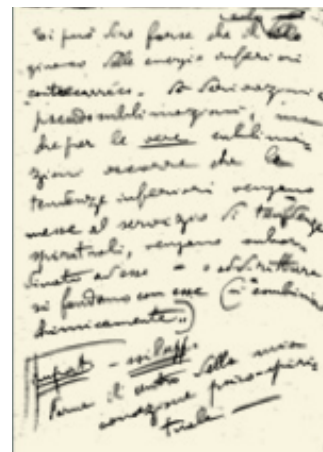 Si può dire forse che il solo
giuoco delle energie inferiori
pseudosublimazioni, ma
che per le vere sublima-
zioni occorre che le
tendenze inferiori vengano
messe al servizio di tendenze
spirituali, vengano subor-
dinate ad esse - o addirittura
si fondano con esse (si combinino
chimicamente..)
import - sviluppo
Farne il centro della mia
concezione psico-spiri
tuale